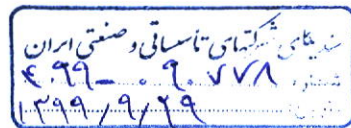 سندیکای شرکتهای تأسیساتی و صنعتی ایران
شماره: ۴۰۹۹-۰۹۰۷۷۸
تاریخ: ۱۳۹۹/۹/۲۹